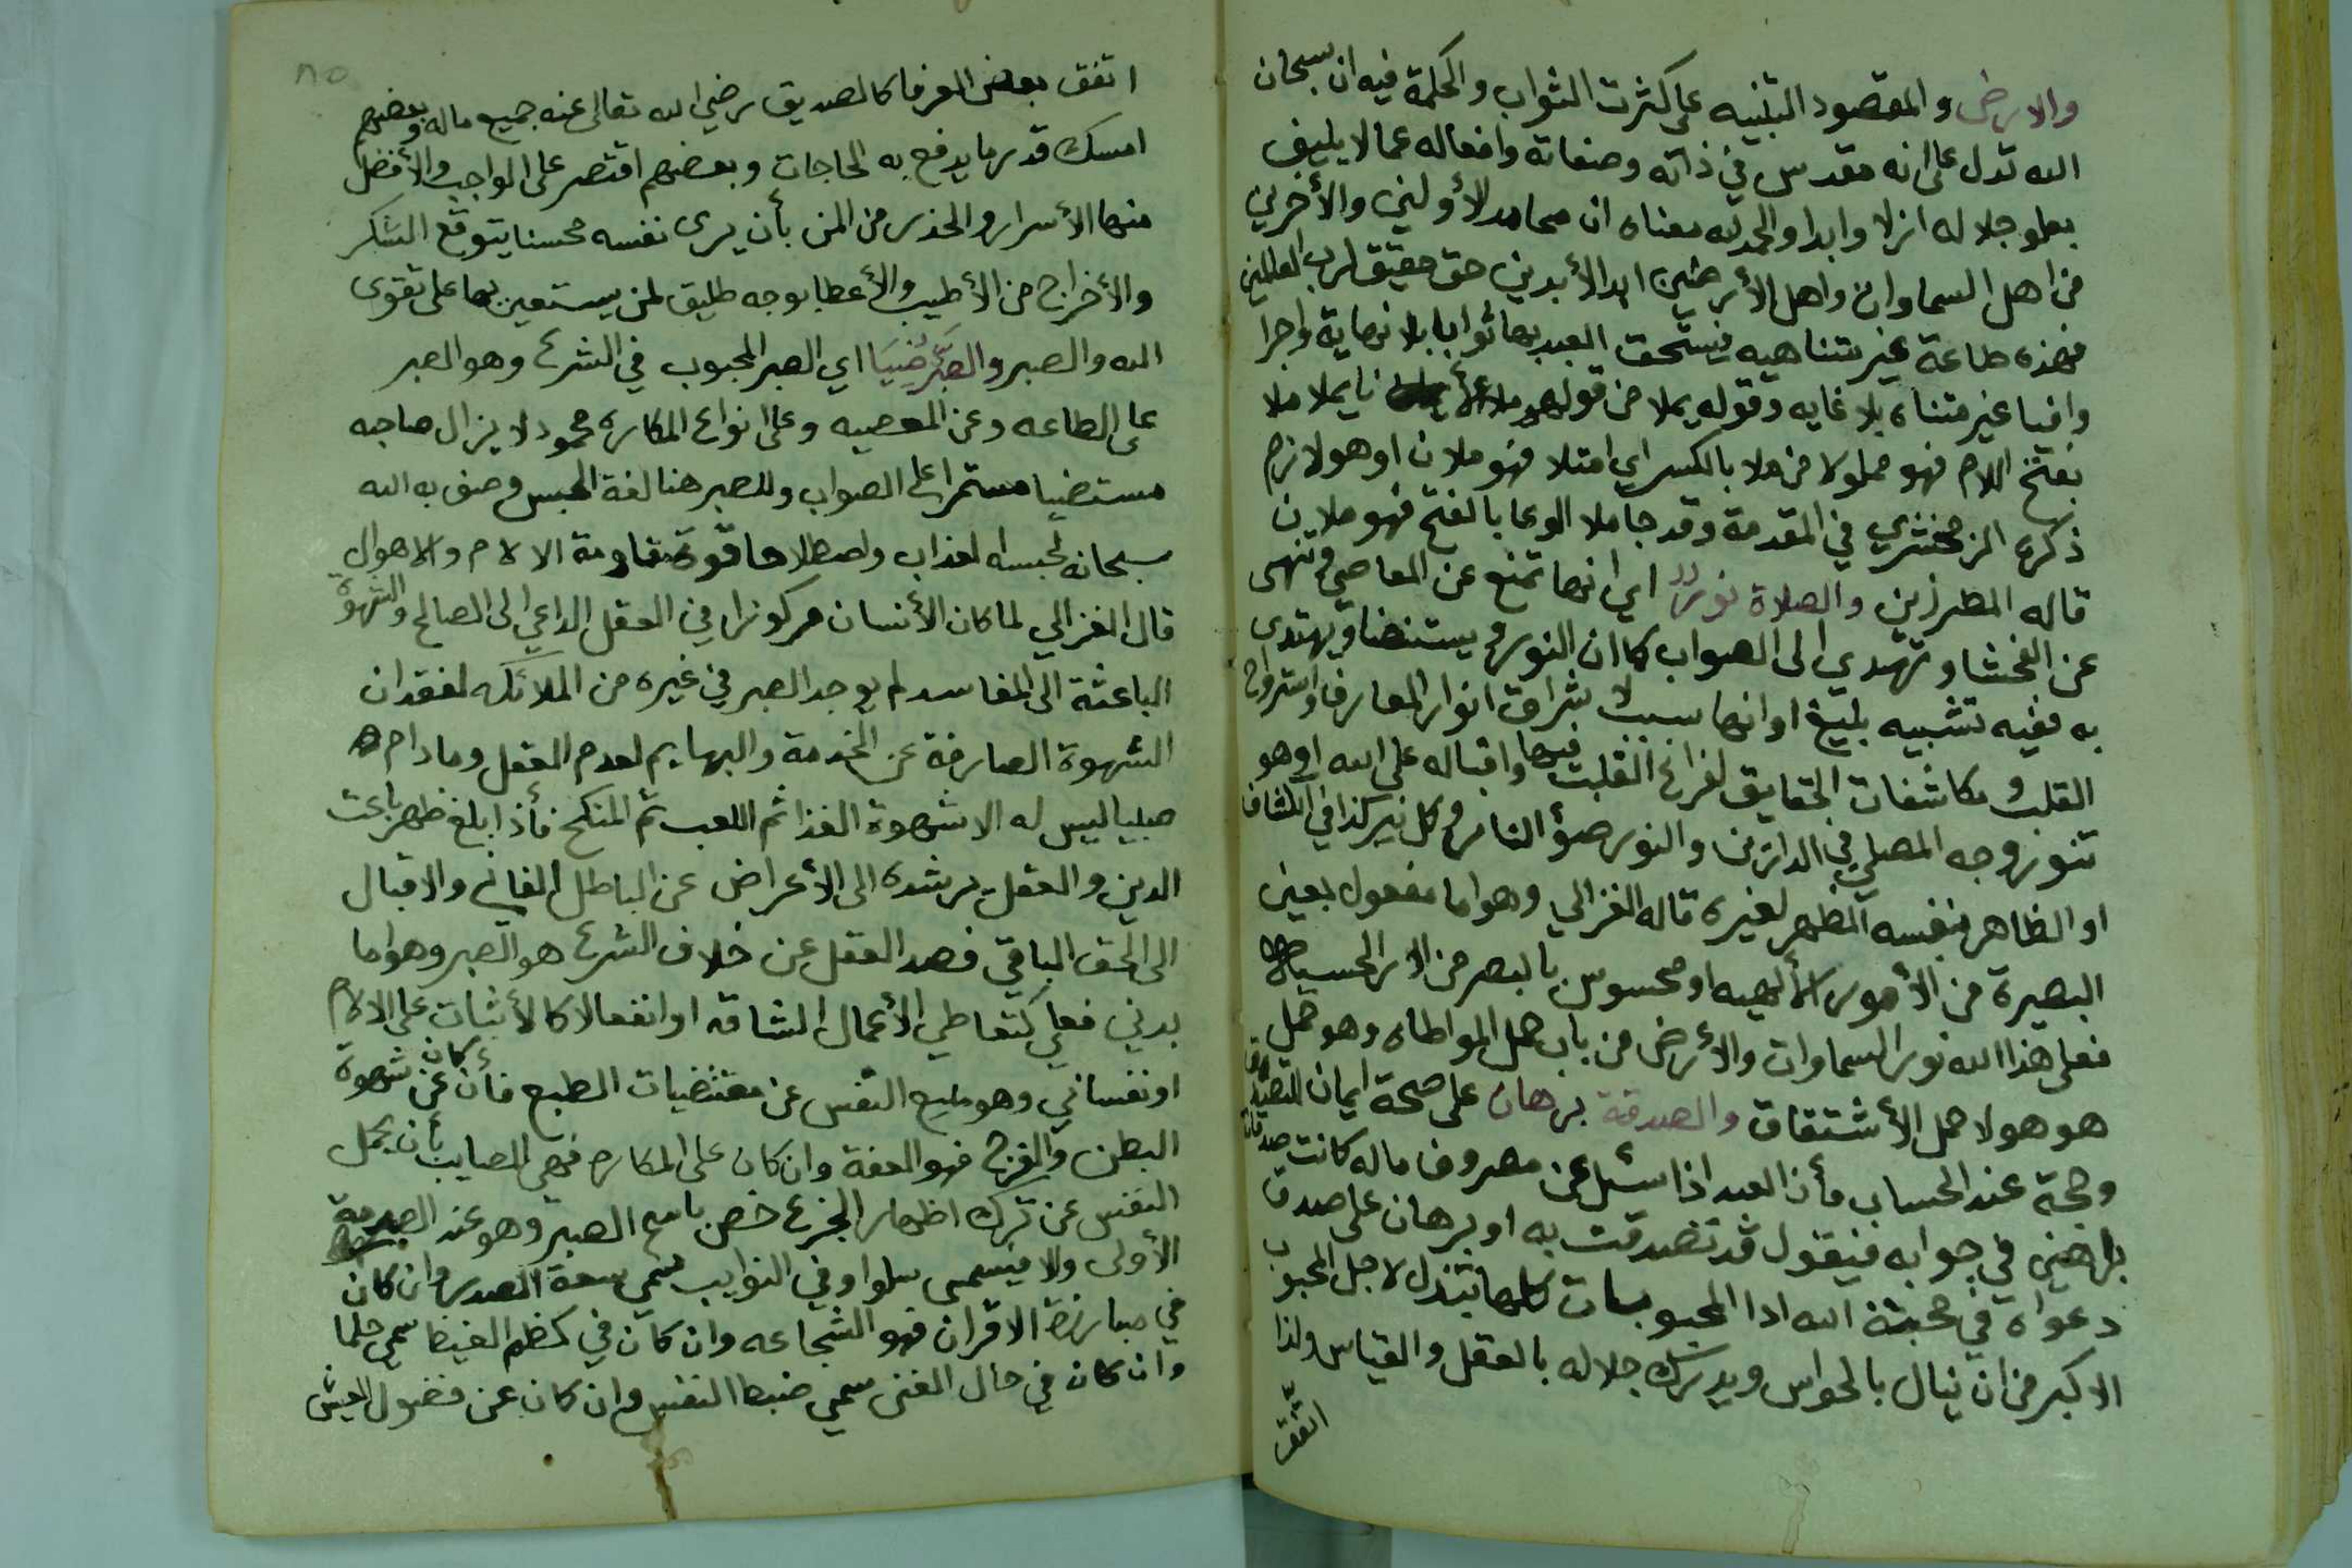 والارض والمقصود التبنيه على كثرت الثواب والحكمة فيه ان سبحان
الله تدل على انه مقدس في ذاته وصفاته وافعاله عما لا يليق
بعلو جلاله ازلا وابدا والحمد لله معناه ان محامد الأولين والأخرين
من اهل السماوات واهل الأرضين ابد الأبدين حق حقيق لرب العالمين
فهذه طاعة غير متناهيه فيستحق العبد بها ثوابا بلا نهاية واجرا
وافيا غير متناه بلا غايه وقوله يملا من قولهم ملا يملا ملا
بفتح اللام فهو مملو لا من ملا بالكسر اي امتلا فهو ملان او هو لازم
ذكره الزمخشري في المقدمة وقد جا ملا الوعا بالفتح فهو ملان
قاله المطرزين والصلاة نور اي انها تمنع عن المعاصي وتنهى
عن الفحشا وتهدي الى الصواب كما ان النور يستضا ويهتدى
به ففيه تشبيه بليغ او انها سبب لا شراق انوار المعارف واستراح
القلب و مكاشفات الحقايق لفراغ القلب فيها واقباله على الله او هو
تنور وجه المصلي في الدارين والنور ضؤ النار وكل نير كذا في الكشاف
او الظاهر بنفسه المظهر لغيره قاله الغزالي وهو اما مفعول بعين
البصيرة من الأمور الألهيه او محسوس بالبصر من
فعلى هذا الله نور السماوات والأرض من باب حمل المواطاه وهو حمل
هو هو لا حمل الأشتقاق والصدقة برهان على صحة ايمان المتصدق
وحجة عند الحساب فأن العبد اذا سئل عن مصروف ماله كانت صدقاته
براهين في جوابه فيقول قد تصدقت به او برهان على صدق
دعواه في محبة الله اذا المحبوبات كلها تبتذل لاجل المحبوب
الاكبر من ان ينال بالحواس ويدرك جلاله بالعقل والقياس ولذا
اتفق
٨٥
اتفق بعض العرفا كالصديق رضي الله تعالى عنه جميع ماله وبعضهم
امسك قدر ما يدفع به الحاجات وبعضهم اقتصر على الواجب والأفضل
منها الأسرار والحذر من المن بأن يرى نفسه محسنا يتوقع الشكر
والأخراج من الأطيب والأعطا بوجه طليق لمن يستعين بها على تقوى
الله والصبر والصبر ضيا اي الصبر المحبوب في الشرع وهو الصبر
على الطاعه وعن المعصيه وعلى انواع المكاره محمود لا يزال صاحبه
مستضيا مستمرا على الصواب وللصبر هنا لغة الحبس وصف به الله
سبحانه لحبسه العذاب واصطلاحا قوة مقاومة الالام والاهوال
قال الغزالي لما كان الأنسان مركوزا في العقل الداعي الى الصالح والشهوة
الباعثة الى المفاسد لم يوجد الصبر في غيره من الملائكه لفقدان
الشهوة الصارفة عن الخدمة والبهايم لعدم العقل وما دام
صبيا ليس له الا شهوة الغذا ثم اللعب ثم المنكح فأذا بلغ ظهر باعث
الدين والعقل يرشده الى الأعراض عن الباطل الفاني والاقبال
الى الحق الباقي فصد العقل عن خلاف الشرع هو الصبر وهو اما
بدني فعلي كتعاطي الأعمال الشاقه او انفعالا كالأثبات على الالام
او نفساني وهو منع النفس عن مقتضيات الطبع فأن كان عن شهوة
البطن والفرج فهو العفة وان كان على المكاره فهي المصايب بأن يحمل
النفس عن ترك اظهار الجزع خص باسم الصبر وهو عند الصدمة
الأولى والا فيسمى سلوا وفي النوايب سمي سعة الصدر وان كان
في مبارزة الاقران فهو الشجاعه وان كان في كظم الغيظ سمي حلما
وان كان في حال الغنى سمي ضبط النفس وان كان عن فضول العيش